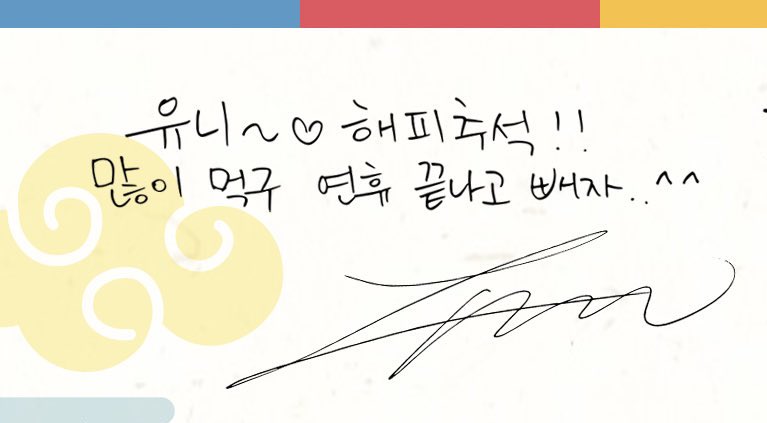 유니~♡ 해피추석!!
많이 먹구 연휴 끝나고 빼자..^^